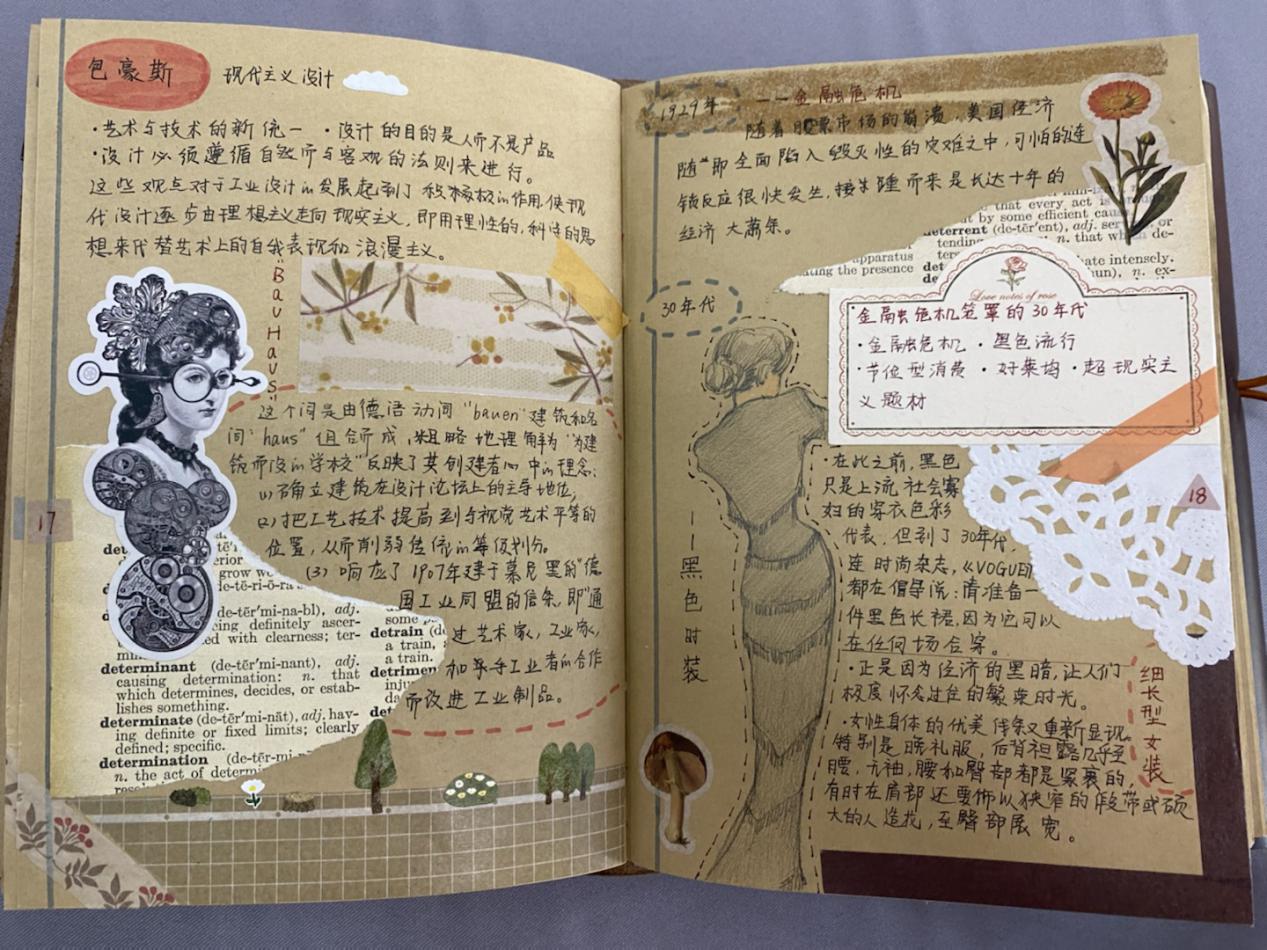 包豪斯
现代主义设计
·艺术与技术的新统一 ·设计的目的是人而不是产品
·设计必须遵循自然而与客观的法则来进行。
这些观点对于工业设计的发展起到了积极的作用,使现
代设计逐步由理想主义走向现实主义,即用理性的,科学的思
想来代替艺术上的自我表现和浪漫主义。
"BauHaus"
这个词是由德语动词"bauen"建筑和名
词"haus"组合而成,粗略地理解为"为建
筑而设的学校"反映了其创建者心中的理念:
(1)确立建筑在设计论坛上的主导地位;
(2)把工艺技术提高到与视觉艺术平等的
位置,从而削弱传统的等级划分。
(3)响应了1907年建于慕尼黑的"德
国工业同盟的信条,即"通
过艺术家,工业家,
和手工业者的合作
而改进工业制品。
17
(de-tĕr′mi-na-bl), adj.
being definitely ascer-
with clearness; ter-
determinant (de-tĕr′mi-nant), adj.
causing determination: n. that
which determines, decides, or estab-
lishes something.
determinate (de-tĕr′mi-nāt), adj. hav-
ing definite or fixed limits; clearly
defined; specific.
determination (de-tĕr-mi-
n. the act of determ
some
detrain (de
a train,
a train.
detrimen
inju
det
1929年
——金融危机
随着股票市场的崩溃,美国经济
随即全面陷入毁灭性的灾难之中,可怕的连
锁反应很快发生,接踵而来是长达十年的
经济大萧条。
that every act is
by some efficient cau
deterrent (de-tĕr′ent), adj.
tending n. that which de-
apparatus
ating the presence
hate intensely.
un), n. ex-
30年代
Love notes of rose
金融危机笼罩的30年代
·金融危机 ·黑色流行
·节俭型消费 ·好莱坞 ·超现实主
义题材
——黑色时装
·在此之前,黑色
只是上流社会寡
妇的穿衣色彩
代表,但到了30年代,
连时尚杂志,《VOGUE》
都在倡导说:请准备一
件黑色长裙,因为它可以
在任何场合穿。
·正是因为经济的黑暗,让人们
极度怀念过往的繁荣时光。
·女性身体的优美线条又重新显现。
特别是晚礼服,后背袒露几乎至
腰,无袖,腰和臀部都是紧裹的,
有时在肩部还要饰以狭窄的缎带或硕
大的人造花,至臀部展宽。
细长型女装
18